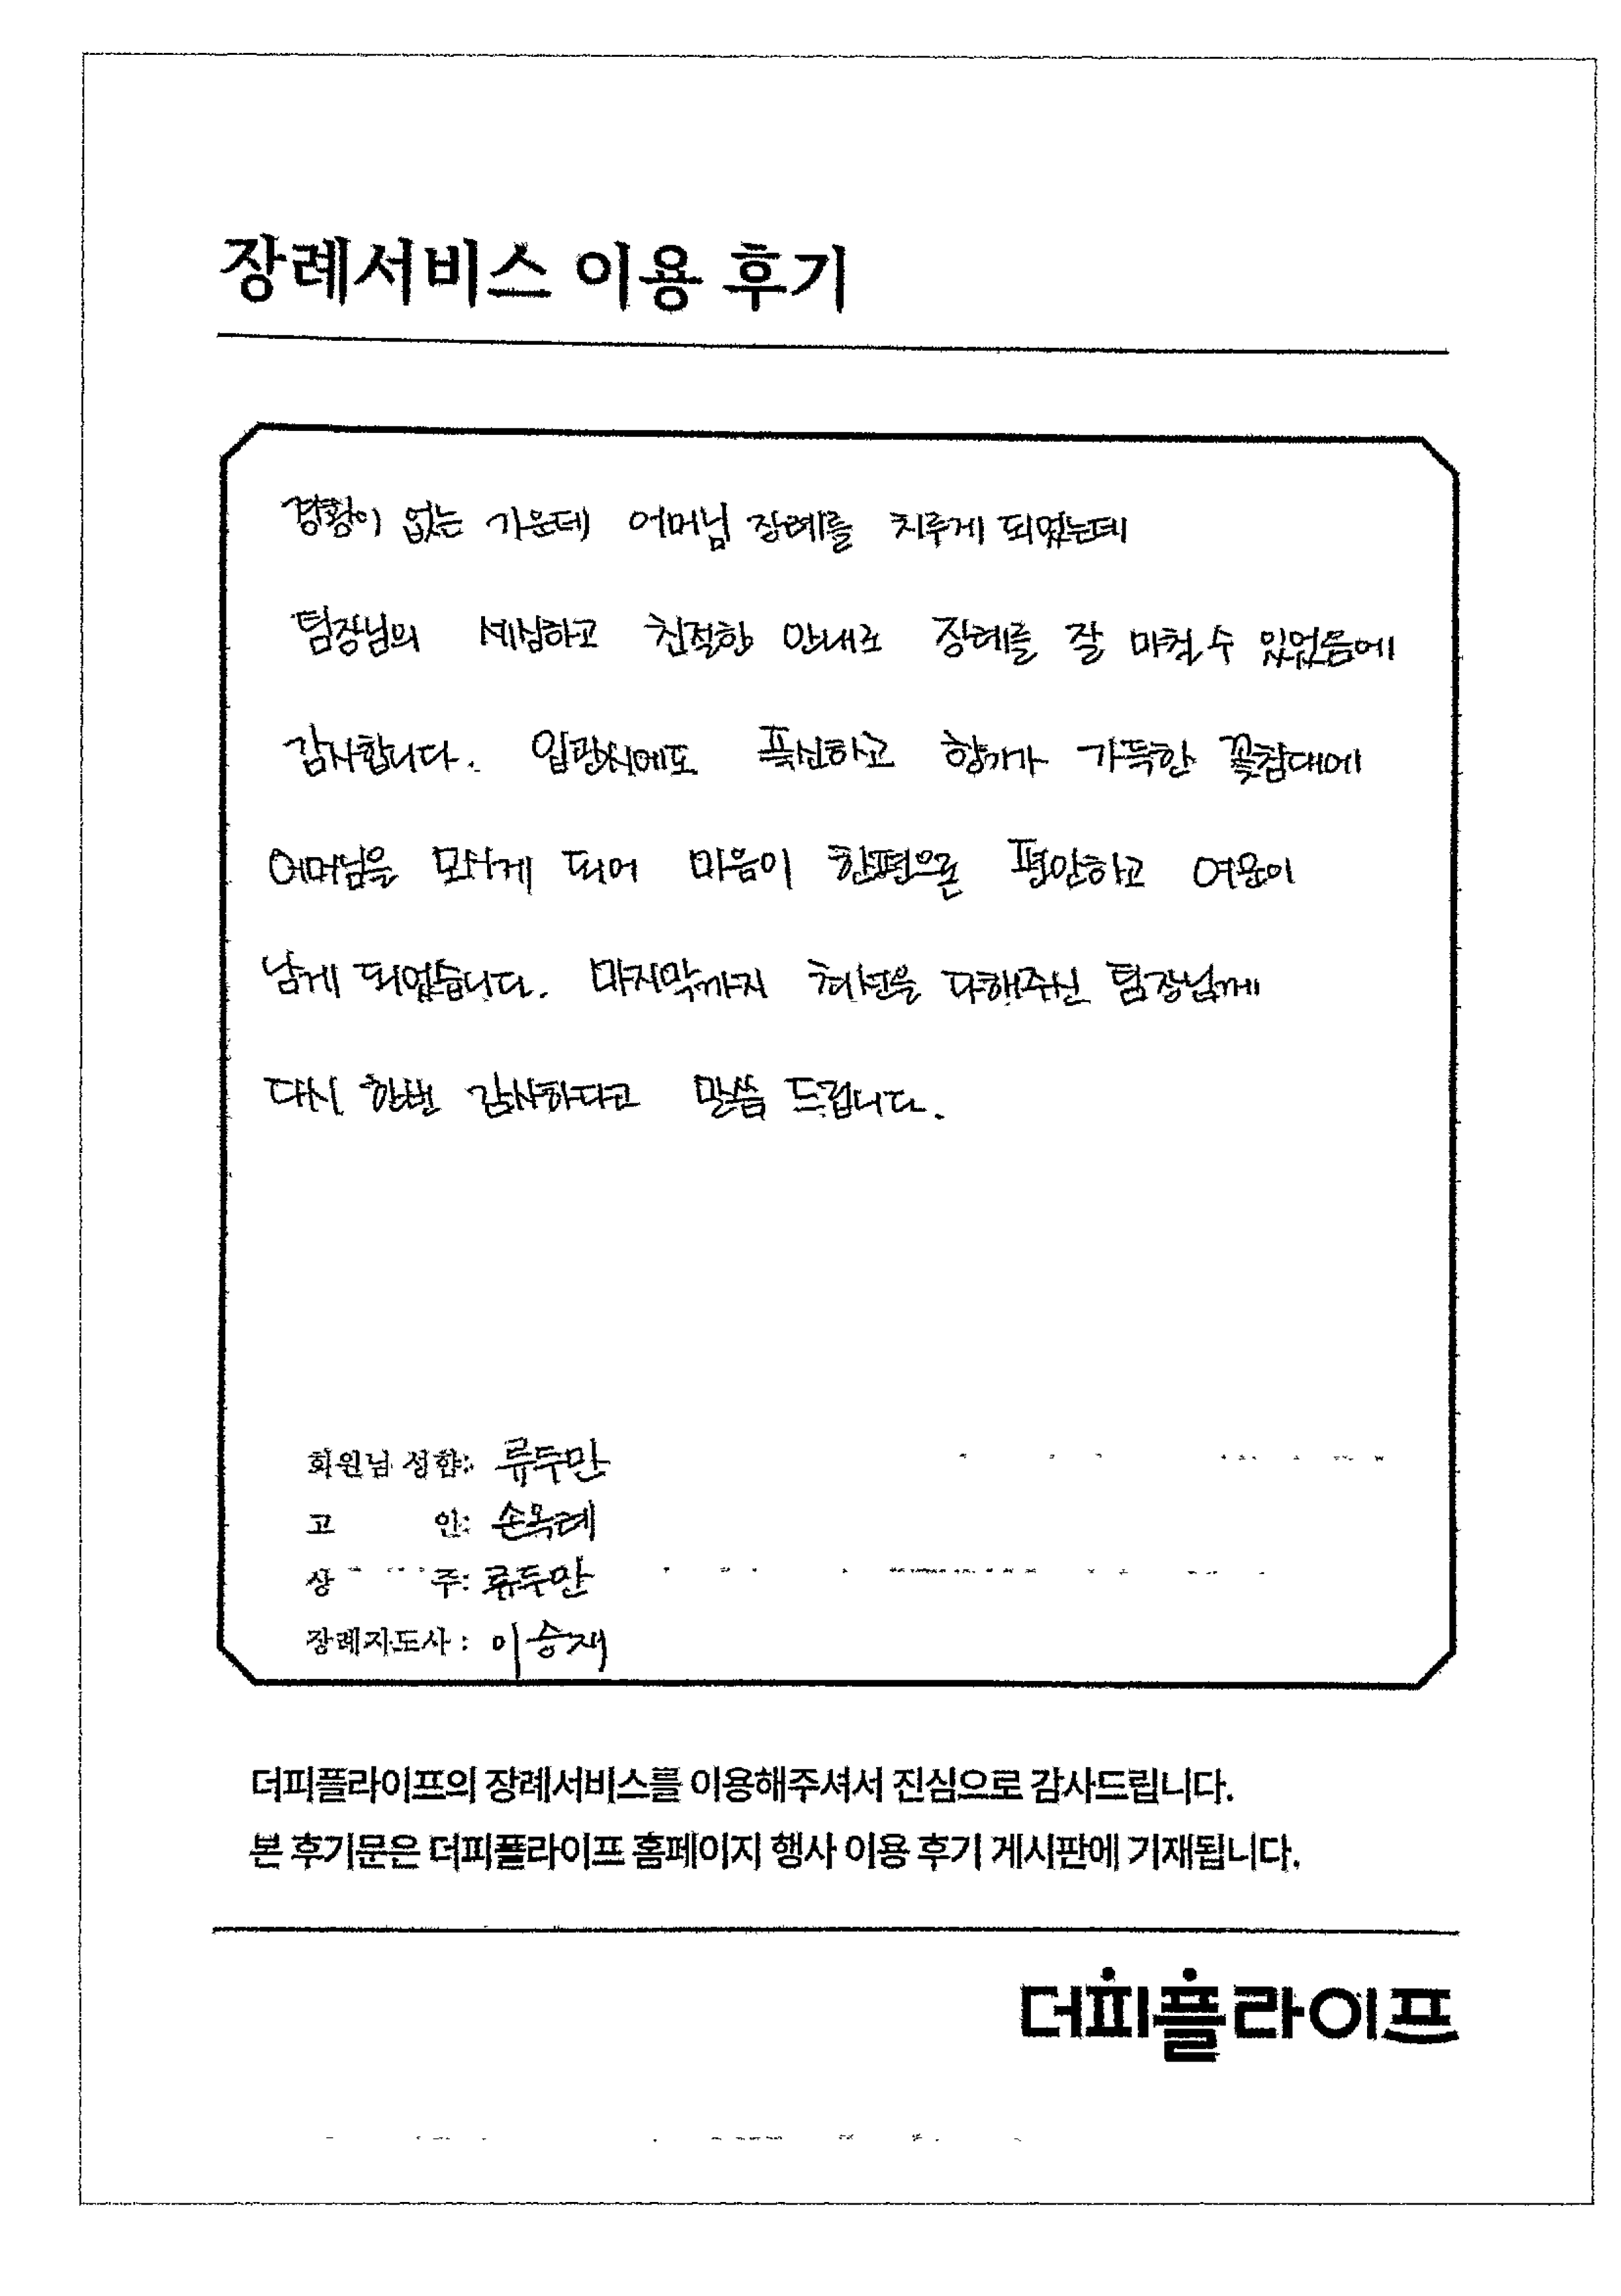 장례서비스 이용 후기
경황이 없는 가운데 어머님 장례를 치루게 되었는데
팀장님의 세심하고 친절한 안내로 장례를 잘 마칠 수 있었음에
감사합니다. 입관시에도 푹신하고 향기가 가득한 꽃침대에
어머님을 모시게 되어 마음이 한편으론 편안하고 여운이
남게 되었습니다. 마지막까지 최선을 다해주신 팀장님께
다시 한번 감사하다고 말씀 드립니다.
회원님 성함: 류두만
고 인: 손옥례
상 주: 류두만
장례지도사 : 이승재
더피플라이프의 장례서비스를 이용해주셔서 진심으로 감사드립니다.
본 후기문은 더피플라이프 홈페이지 행사 이용 후기 게시판에 기재됩니다.
더피플라이프